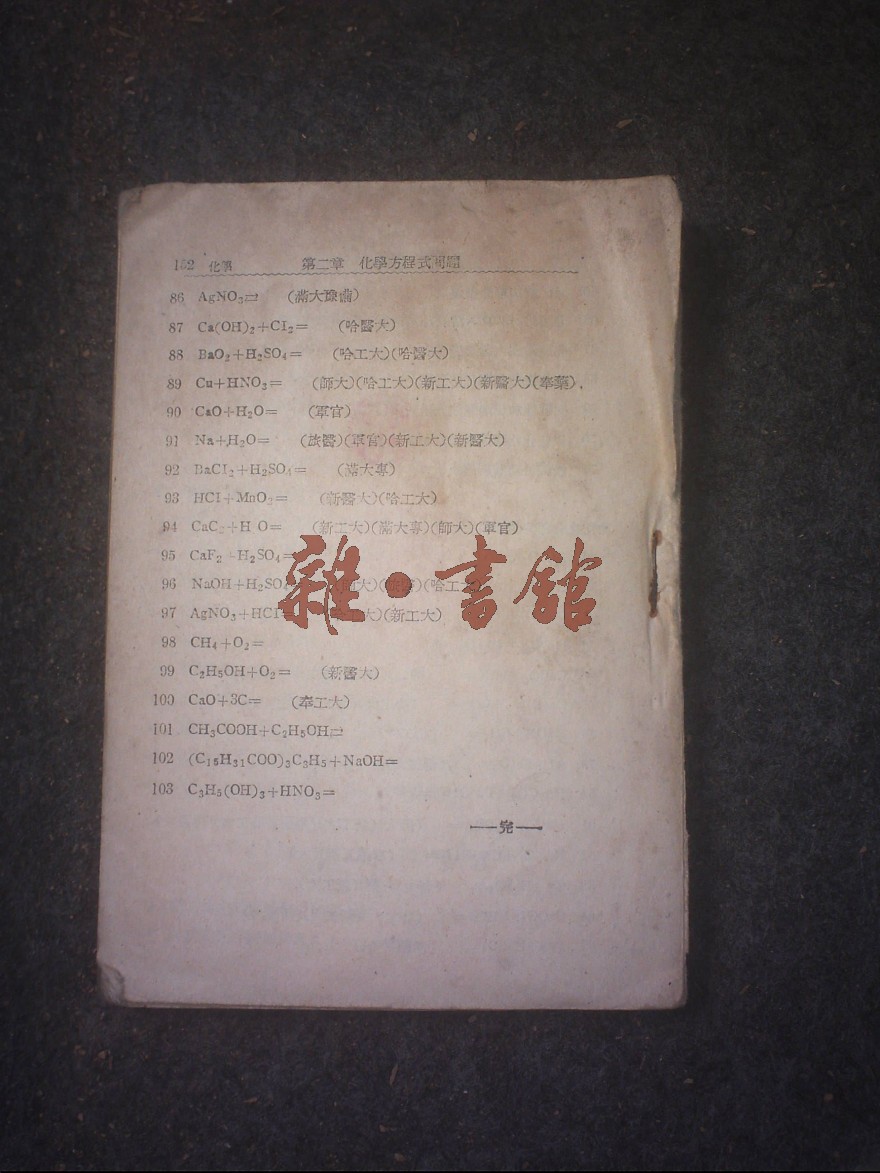 152 化學 第二章 化學方程式問題
86 AgNO₃⇌ (滿大豫齒)
87 Ca(OH)₂+Cl₂= (哈醫大)
88 BaO₂+H₂SO₄= (哈工大)(哈醫大)
89 Cu+HNO₃= (師大)(哈工大)(新工大)(新醫大)(奉藥),
90 CaO+H₂O= (軍官)
91 Na+H₂O= (旅醫)(軍官)(新工大)(新醫大)
92 BaCl₂+H₂SO₄= (滿大專)
93 HCl+MnO₂= (新醫大)(哈工大)
94 CaC₂+H O= (新工大)(滿大專)(師大)(軍官)
95 CaF₂ +H₂SO₄=
96 NaOH+H₂SO₄ (哈工大)
97 AgNO₃+HCl= (新工大)
雜·書館
98 CH₄+O₂=
99 C₂H₅OH+O₂= (新醫大)
100 CaO+3C= (奉工大)
101 CH₃COOH+C₂H₅OH⇌
102 (C₁₅H₃₁COO)₃C₃H₅+NaOH=
103 C₃H₅(OH)₃+HNO₃=
——完——